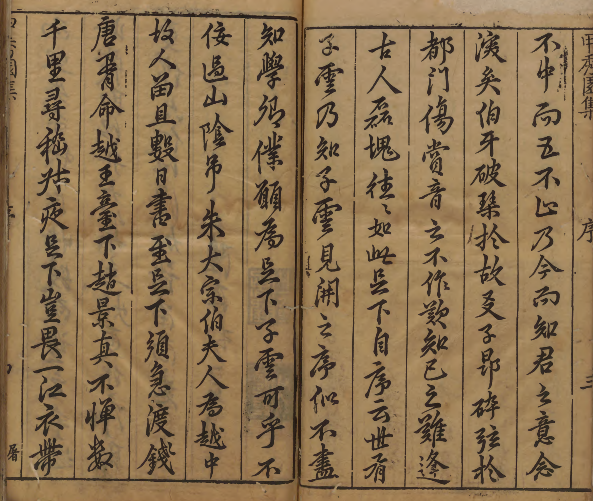 甲秀園集
序
三
不中而五不止乃今而知君之意念
深矣伯牙破琴於故交子昂碎弦於
都門傷賞音之不作歎知己之難逢
古人磊塊往〻如此足下自序云世有
子雲乃知子雲見聞之序似不盡
知學卿僕願為足下子雲可乎不
佞過山陰弔朱大宗伯夫人為越中
故人留且數日書至足下須急渡錢
唐胥命越王臺下趙景真不憚數
千里尋嵇叔夜足下豈畏一江衣帶